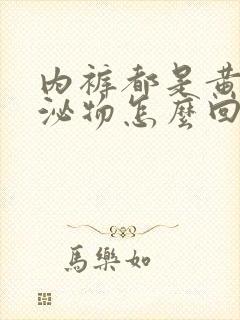 内裤都是黄
泌物怎麼回
馬樂如